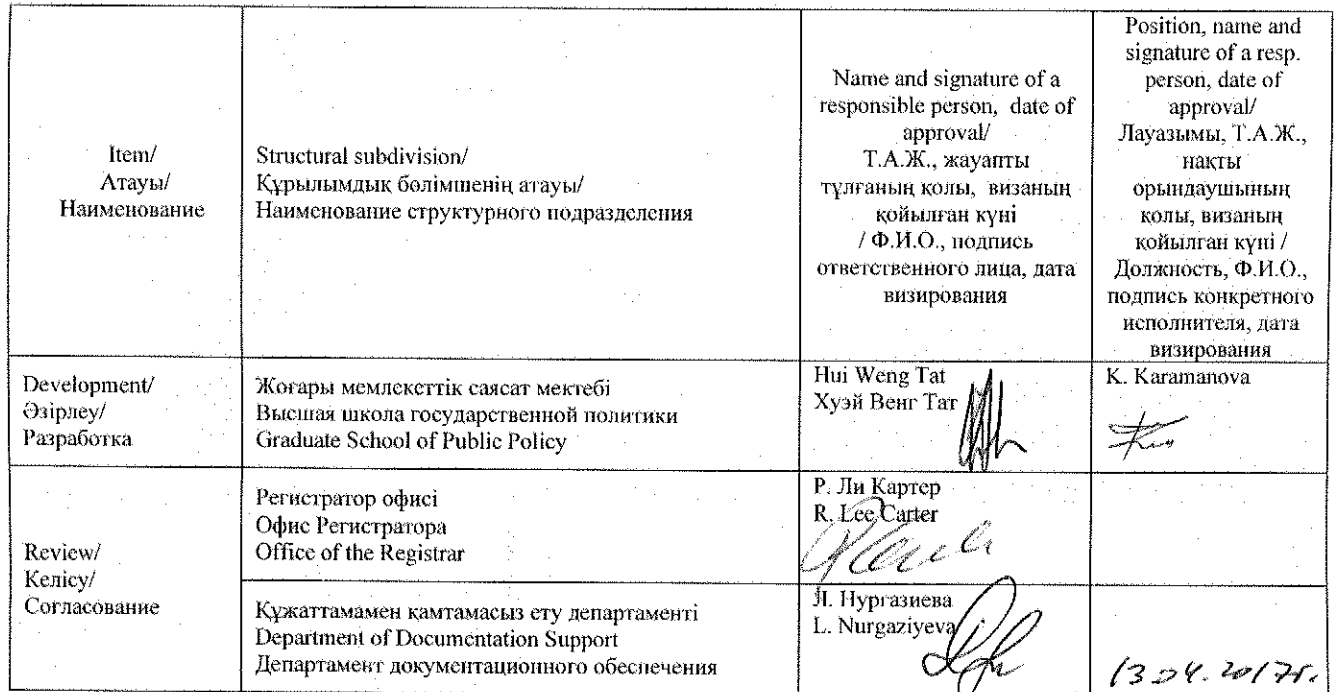 Item/
Атауы/
Наименование
Structural subdivision/
Құрылымдық бөлімшенің атауы/
Наименование структурного подразделения
Name and signature of a
responsible person, date of
approval/
Т.А.Ж., жауапты
тұлғаның қолы, визаның
қойылған күні
/ Ф.И.О., подпись
ответственного лица, дата
визирования
Position, name and
signature of a resp.
person, date of
approval/
Лауазымы, Т.А.Ж.,
нақты
орындаушының
қолы, визаның
қойылған күні /
Должность, Ф.И.О.,
подпись конкретного
исполнителя, дата
визирования
Development/
Әзірлеу/
Разработка
Жоғары мемлекеттік саясат мектебі
Высшая школа государственной политики
Graduate School of Public Policy
Hui Weng Tat
Хуэй Венг Тат
K. Karamanova
Review/
Келісу/
Согласование
Регистратор офисі
Офис Регистратора
Office of the Registrar
Р. Ли Картер
R. Lee Carter
Құжаттамамен қамтамасыз ету департаменті
Department of Documentation Support
Департамент документационного обеспечения
Л. Нургазиева
L. Nurgaziyeva
13.04.2017г.